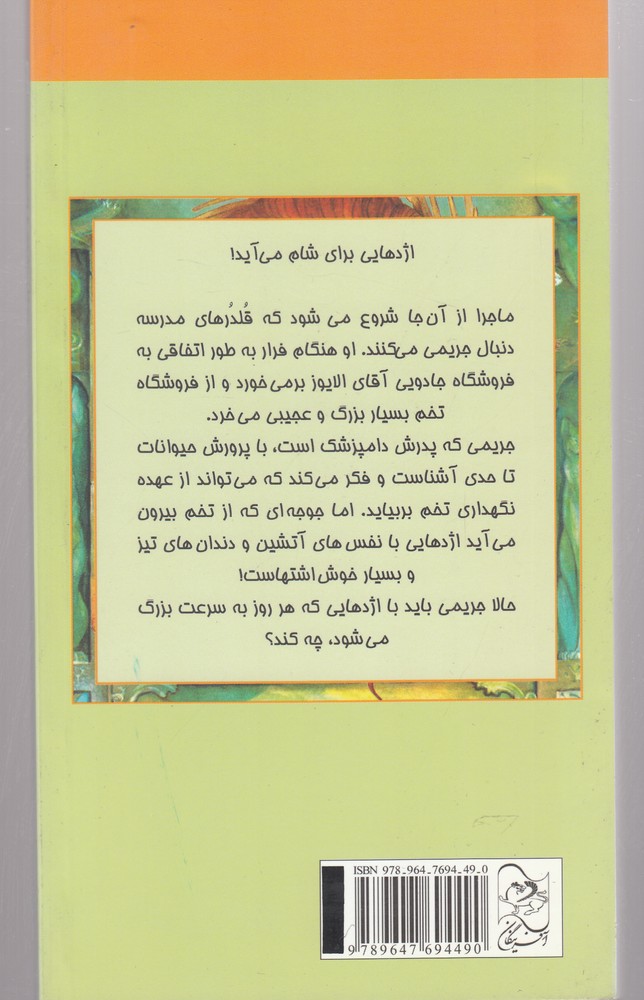 اژدهایی برای شام می‌آید!
ماجرا از آن‌جا شروع می شود که قُلدُرهای مدرسه
دنبال جریمی می‌کنند. او هنگام فرار به طور اتفاقی به
فروشگاه جادویی آقای الایوز برمی‌خورد و از فروشگاه
تخم بسیار بزرگ و عجیبی می‌خرد.
جریمی که پدرش دامپزشک است، با پرورش حیوانات
تا حدی آشناست و فکر می‌کند که می‌تواند از عهده
نگهداری تخم بربیاید. اما جوجه‌ای که از تخم بیرون
می‌آید اژدهایی با نفس های آتشین و دندان های تیز
و بسیار خوش‌اشتهاست!
حالا جریمی باید با اژدهایی که هر روز به سرعت بزرگ
می‌شود، چه کند؟
ISBN 978-964-7694-49-0
9 789647 694490
آفرینگان